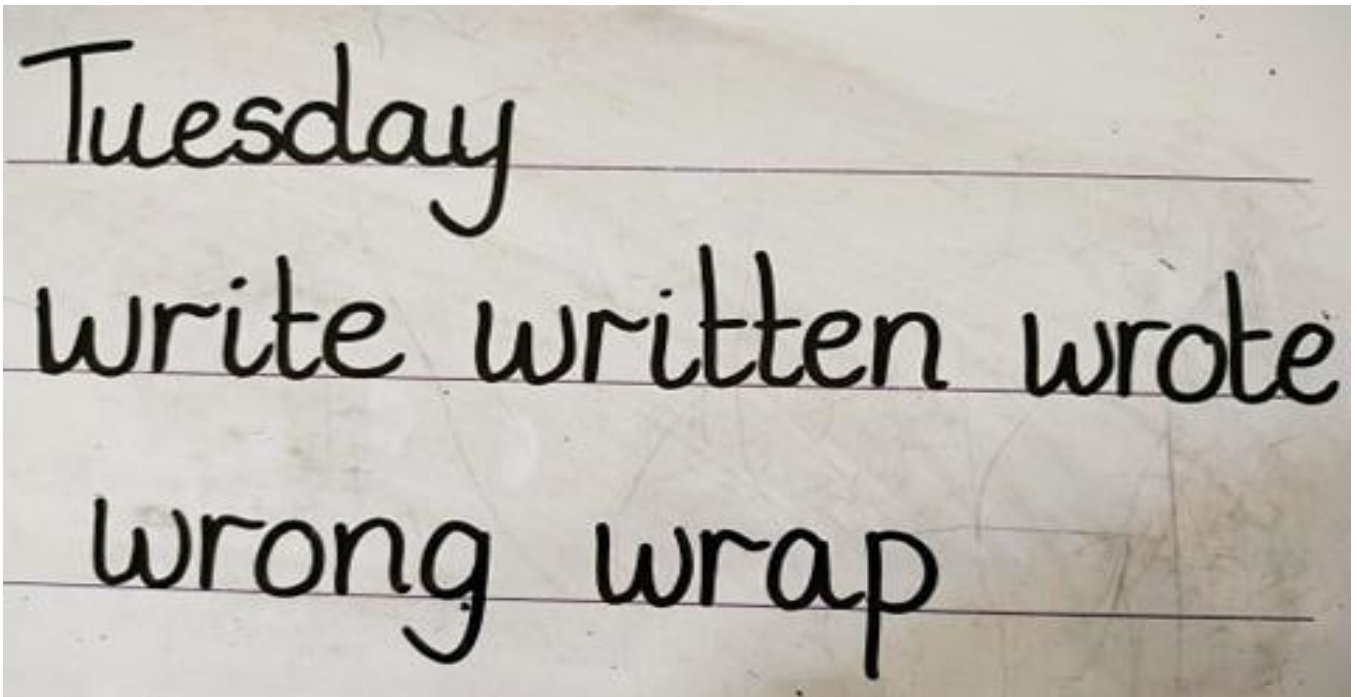 Tuesday
write written wrote
wrong wrap